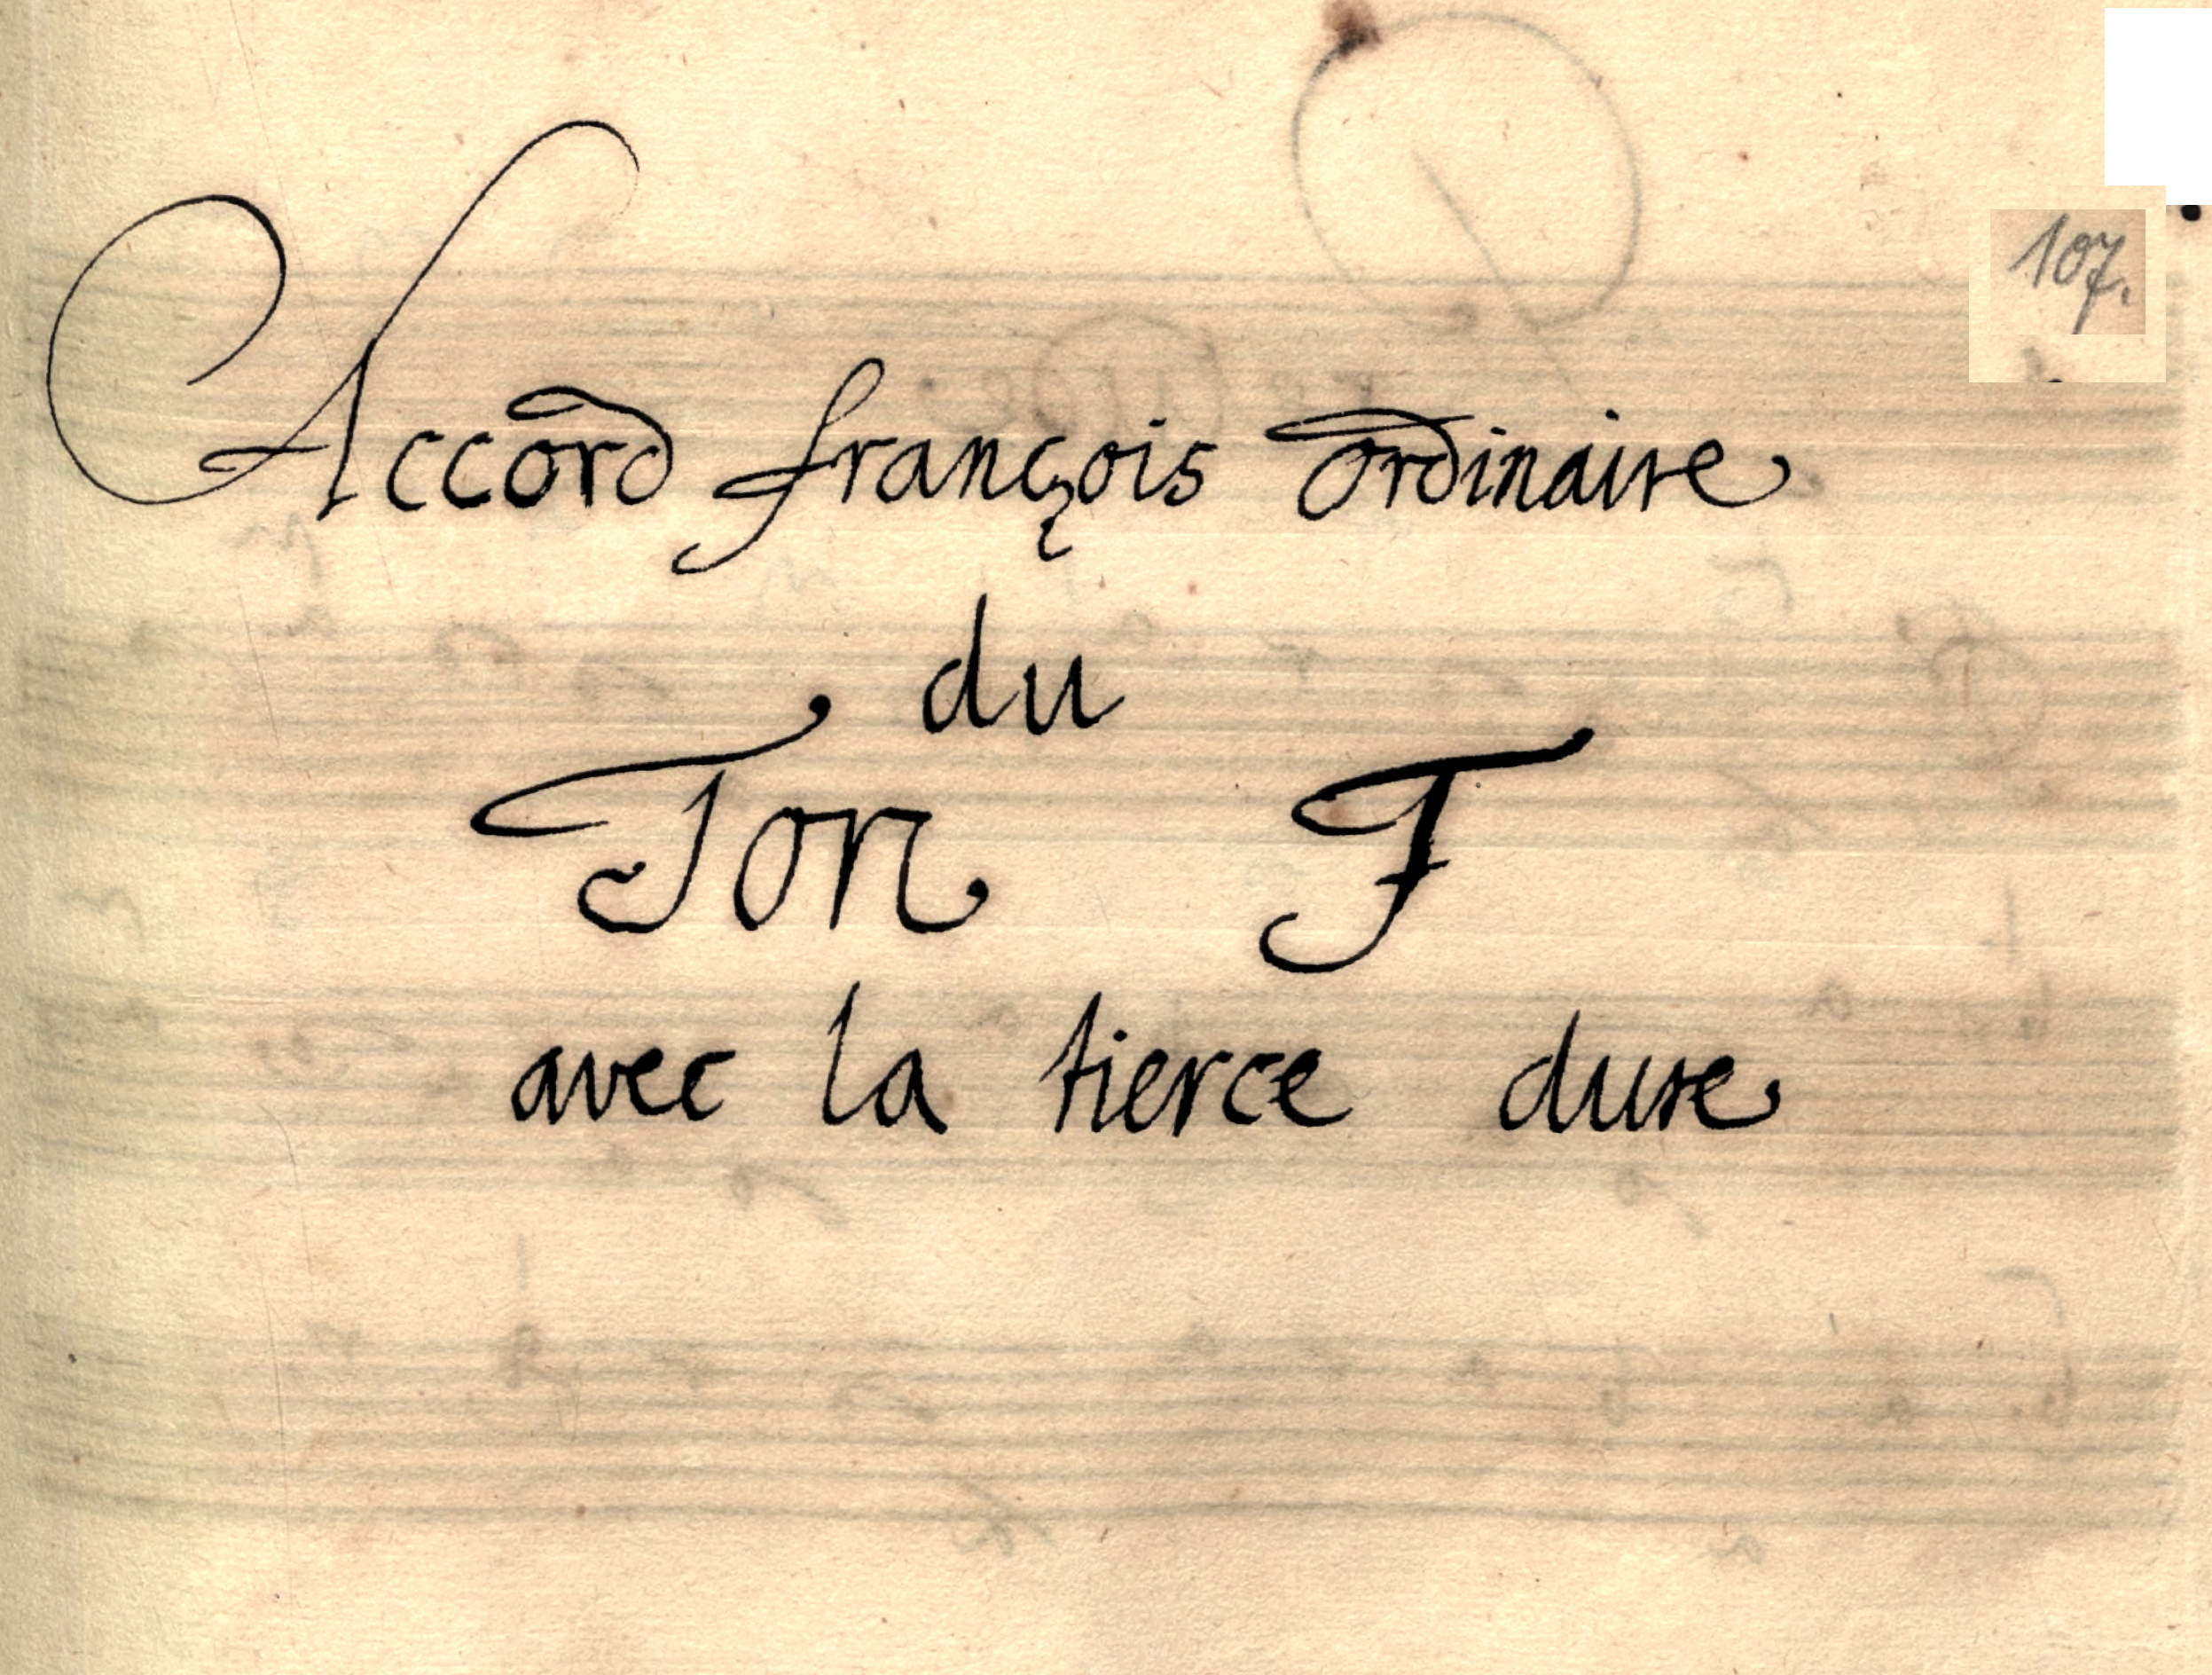 107.
Accord françois ordinaire
du
Ton F
avec la tierce dure